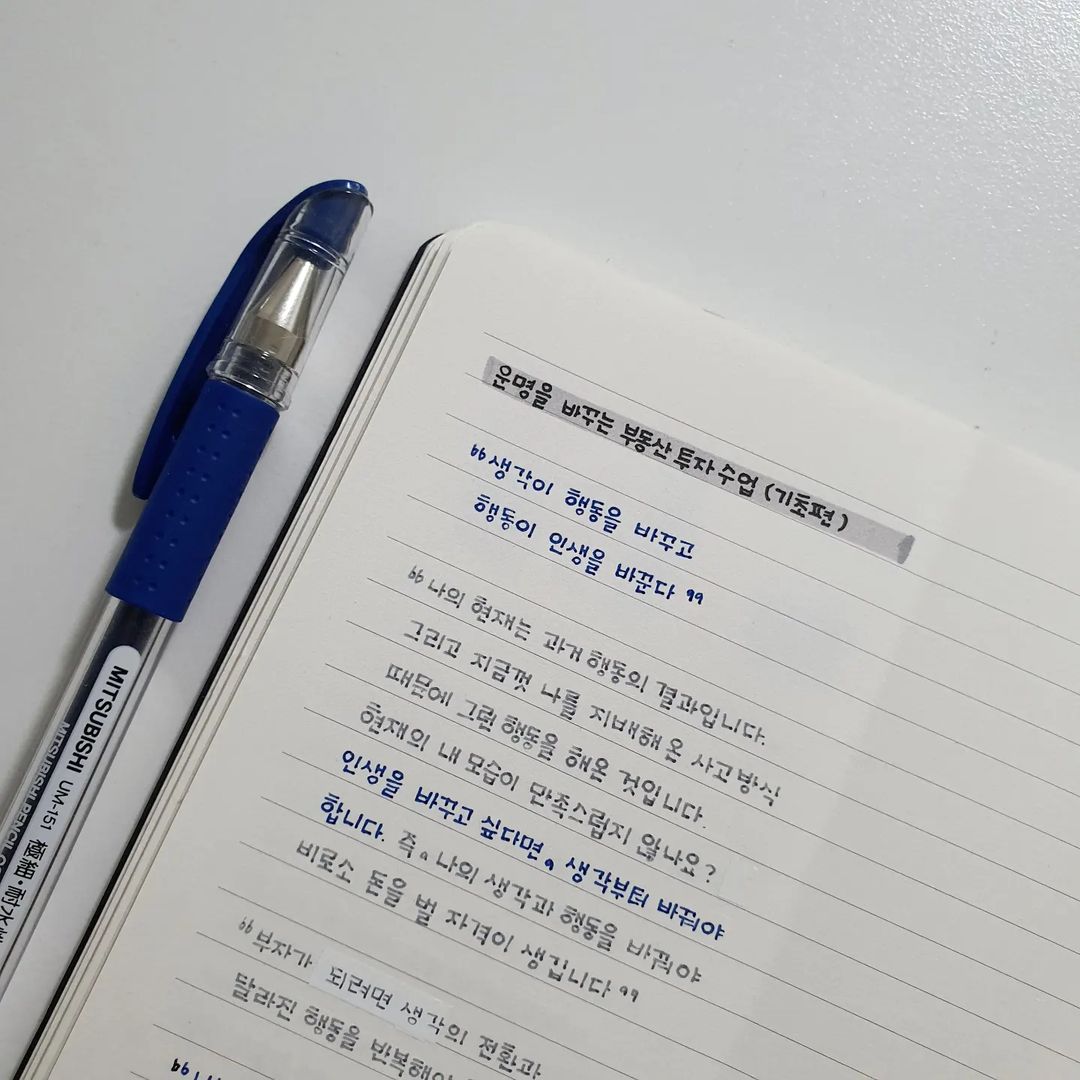 운명을 바꾸는 부동산 투자 수업 (기초편)
“생각이 행동을 바꾸고
행동이 인생을 바꾼다”
“나의 현재는 과거 행동의 결과입니다.
그리고 지금껏 나를 지배해 온 사고방식
때문에 그런 행동을 해온 것입니다.
현재의 내 모습이 만족스럽지 않나요?
인생을 바꾸고 싶다면, 생각부터 바꿔야
합니다. 즉, 나의 생각과 행동을 바꿔야
비로소 돈을 벌 자격이 생깁니다”
“부자가 되려면 생각의 전환과
달라진 행동을 반복해야
MITSUBISHI UM-151 極細・耐水性
MITSUBISHI PENCIL CO